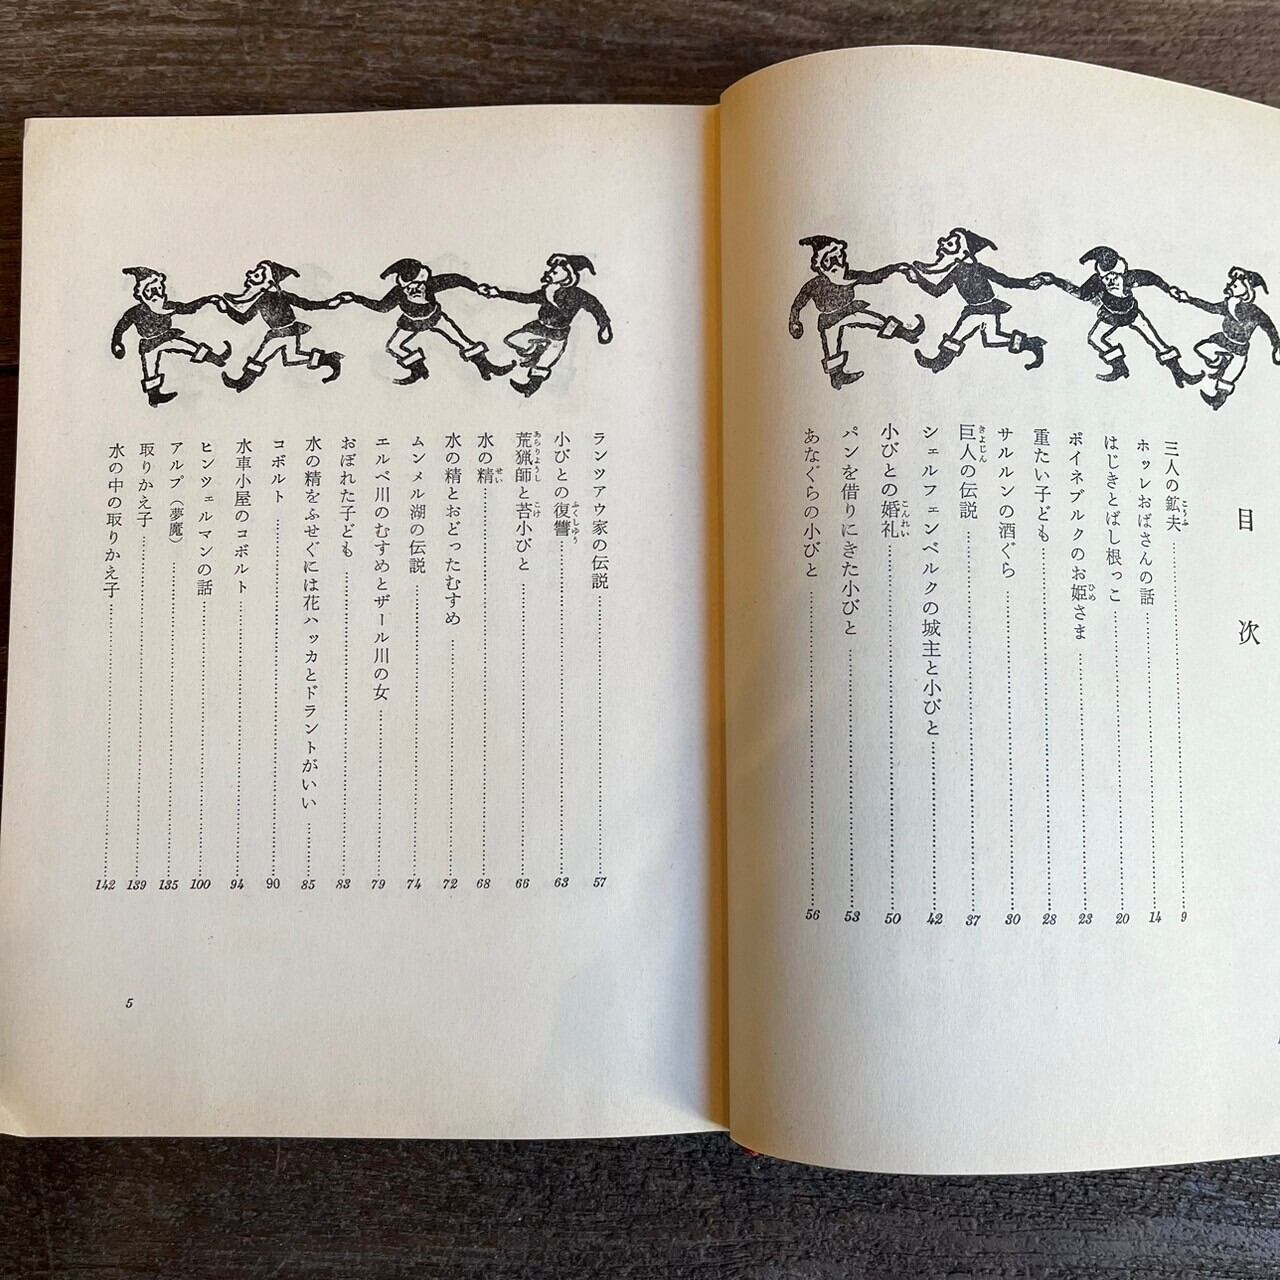 目次
三人の鉱夫 9
ホッレおばさんの話 14
はじきとばし根っこ 20
ボイネブルクのお姫さま 23
重たい子ども 28
サルルンの酒ぐら 30
巨人の伝説 37
シェルフェンベルクの城主と小びと 42
小びとの婚礼 50
パンを借りにきた小びと 53
あなぐらの小びと 56
ランツアウ家の伝説 57
小びとの復讐 63
荒猟師と苔小びと 66
水の精 68
水の精とおどったむすめ 72
ムンメル湖の伝説 74
エルベ川のむすめとザール川の女 79
おぼれた子ども 83
水の精をふせぐには花ハッカとドラントがいい 85
コボルト 90
水車小屋のコボルト 94
ヒンツェルマンの話 100
アルプ(夢魔) 135
取りかえ子 139
水の中の取りかえ子 142
5